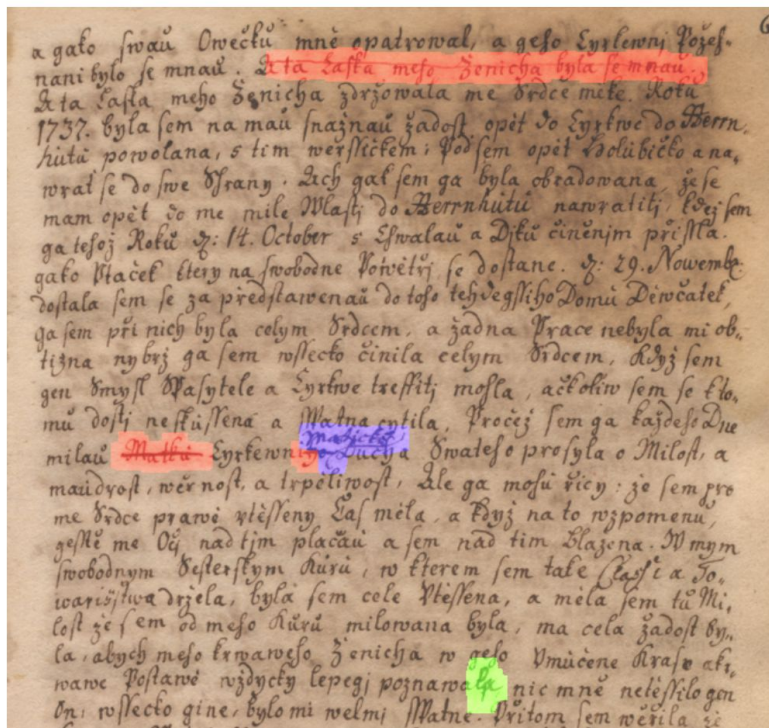 a gako swau Owečku mně opatrowal, a geho Cyrkewnj Požeh-
nani bylo se mnau. A ta Laska meho Ženicha byla se mnau,
A ta Laska meho Ženicha zdržowala me Srdce mile. Roku
1737. byla sem na mau snažnau žadost opět do Cyrkwe do Herrn-
hutu powolana, s tim werssičkem: Pod sem opět Holubičko a na-
wrať se do swe Shrany. Ach gak sem ga byla obradowana, že se
mam opět do me mile Wlasti do Herrnhutu nawratiti, kdež sem
ga tehož Roku d: 14. October s Chwalau a Djku činěnjm přissla.
gako Ptaček ktery na swobodne Powětřj se dostane. d: 29. Nowemb:
dostala sem se za představenau do toho tehdegssiho Domu Děwčatek,
ga sem při nich byla celym Srdcem, a žadna Prace nebyla mi ob-
tižna nybrž ga sem wssecko činila celym Srdcem, když sem
gen Smysl Spasytele a Cyrkwe treffiti mohla, ačkoliw sem se k to-
mu dosti neskussena a Matna cytila, Pročež sem ga každeho Dne
Maticku
milau Matku Cyrkewnj Ducha Swateho prosyla o Milost, a
maudrost, wěrnost, a trpěliwost, Ale ga mohu řicy: že sem pro
me Srdce prawě vtěsseny Čas měla, a když na to wzpomenu,
gesstě me Oči nad tjm plačau a sem nad tim blazena. W mym
swobodnym Sesterskym Kůru, w kterem sem take Classi a To-
warisstwa držela, byla sem cele Vtěssena, a měla sem tu Mi-
lost že sem od meho Kůru milowana byla, ma cela žadost by-
la, abych meho krwaweho Ženicha w geho Vmučene Krase a kr-
wawe Postawě wždycky lepegi poznawala nic mně netěssilo gen
On: wssecko gine bylo mi welmi Matne. Přitom sem wěřila, že